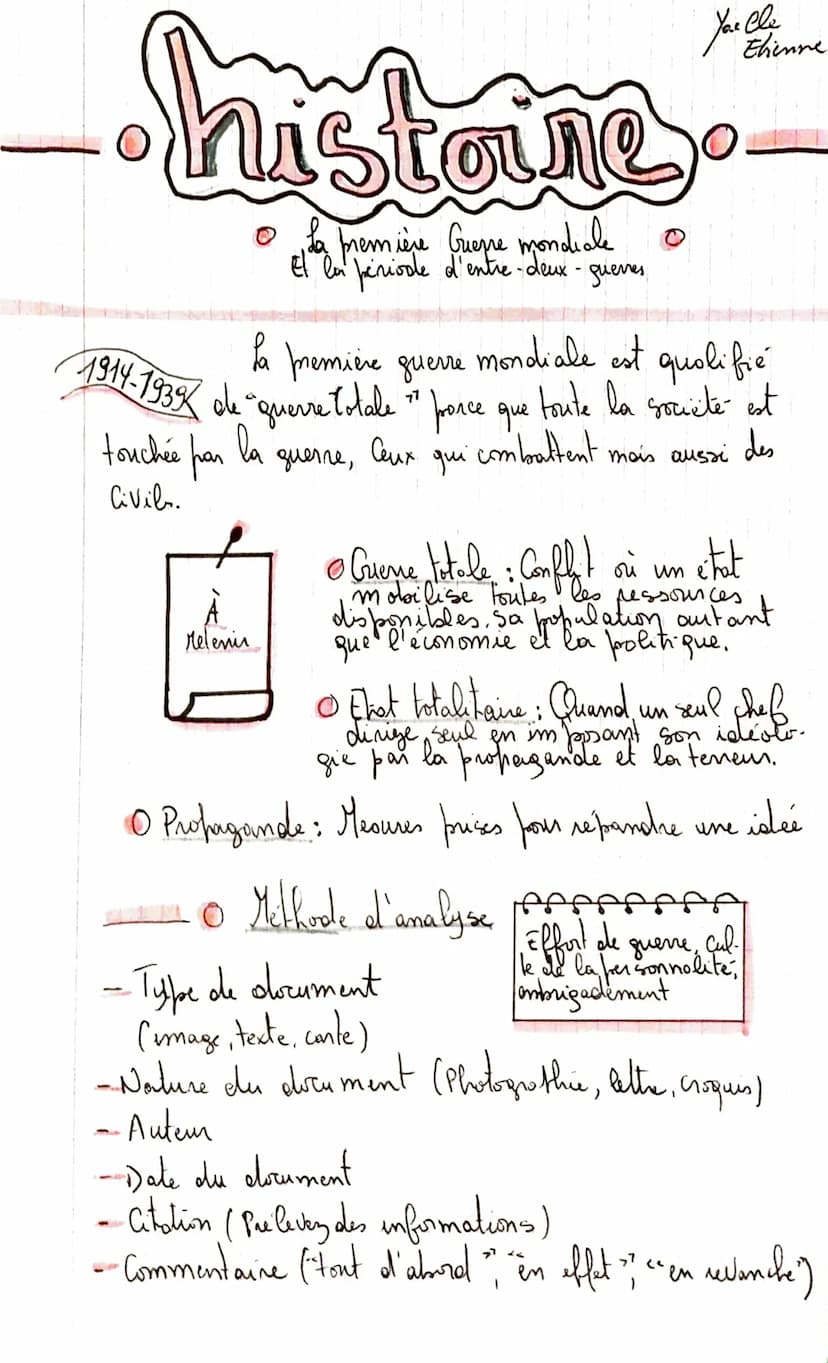 Yaelle
Etienne
histoire
La première Guerre mondiale
Et la période d'entre-deux-guerres
1914-1939
La première guerre mondiale est qualifié
de "guerre totale" parce que toute la société est
touchée par la guerre, Ceux qui combattent mais aussi des
Civils.
À
Retenir
Guerre totale : Conflit où un état
mobilise toutes les ressources
disponibles, sa population autant
que l'économie et la politique.
Etat totalitaire : Quand un seul chef
dirige seul en imposant son idéolo-
gie par la propagande et la terreur.
Propagande : Mesures prises pour répandre une idée
Méthode d'analyse
Effort de guerre, cul-
te de la personnalité,
embrigadement
- Type de document
(image, texte, carte)
- Nature du document (Photographie, lettre, croquis)
- Auteur
- Date du document
- Citation (Prélevez des informations)
- Commentaire ("tout d'abord", "en effet", "en revanche")